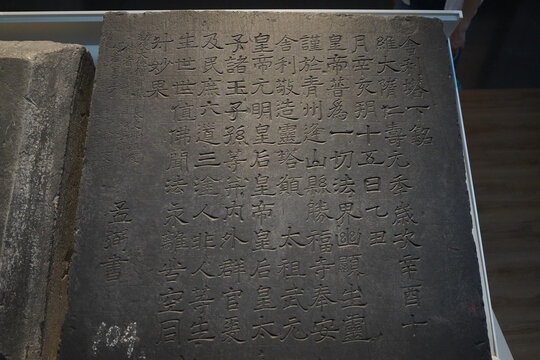 舍利塔下銘
維大隋仁壽元年歲次辛酉十
月辛亥朔十五日乙丑
皇帝普為一切法界幽顯生靈
謹於青州逢山縣勝福寺奉安
舍利敬造靈塔願 太祖武元
皇帝元明皇后皇帝皇后皇太
子諸王子孫等并內外群官爰
及民庶六道三塗人非人等生
生世世值佛聞法永離苦空同
升妙果
孟弼書
104